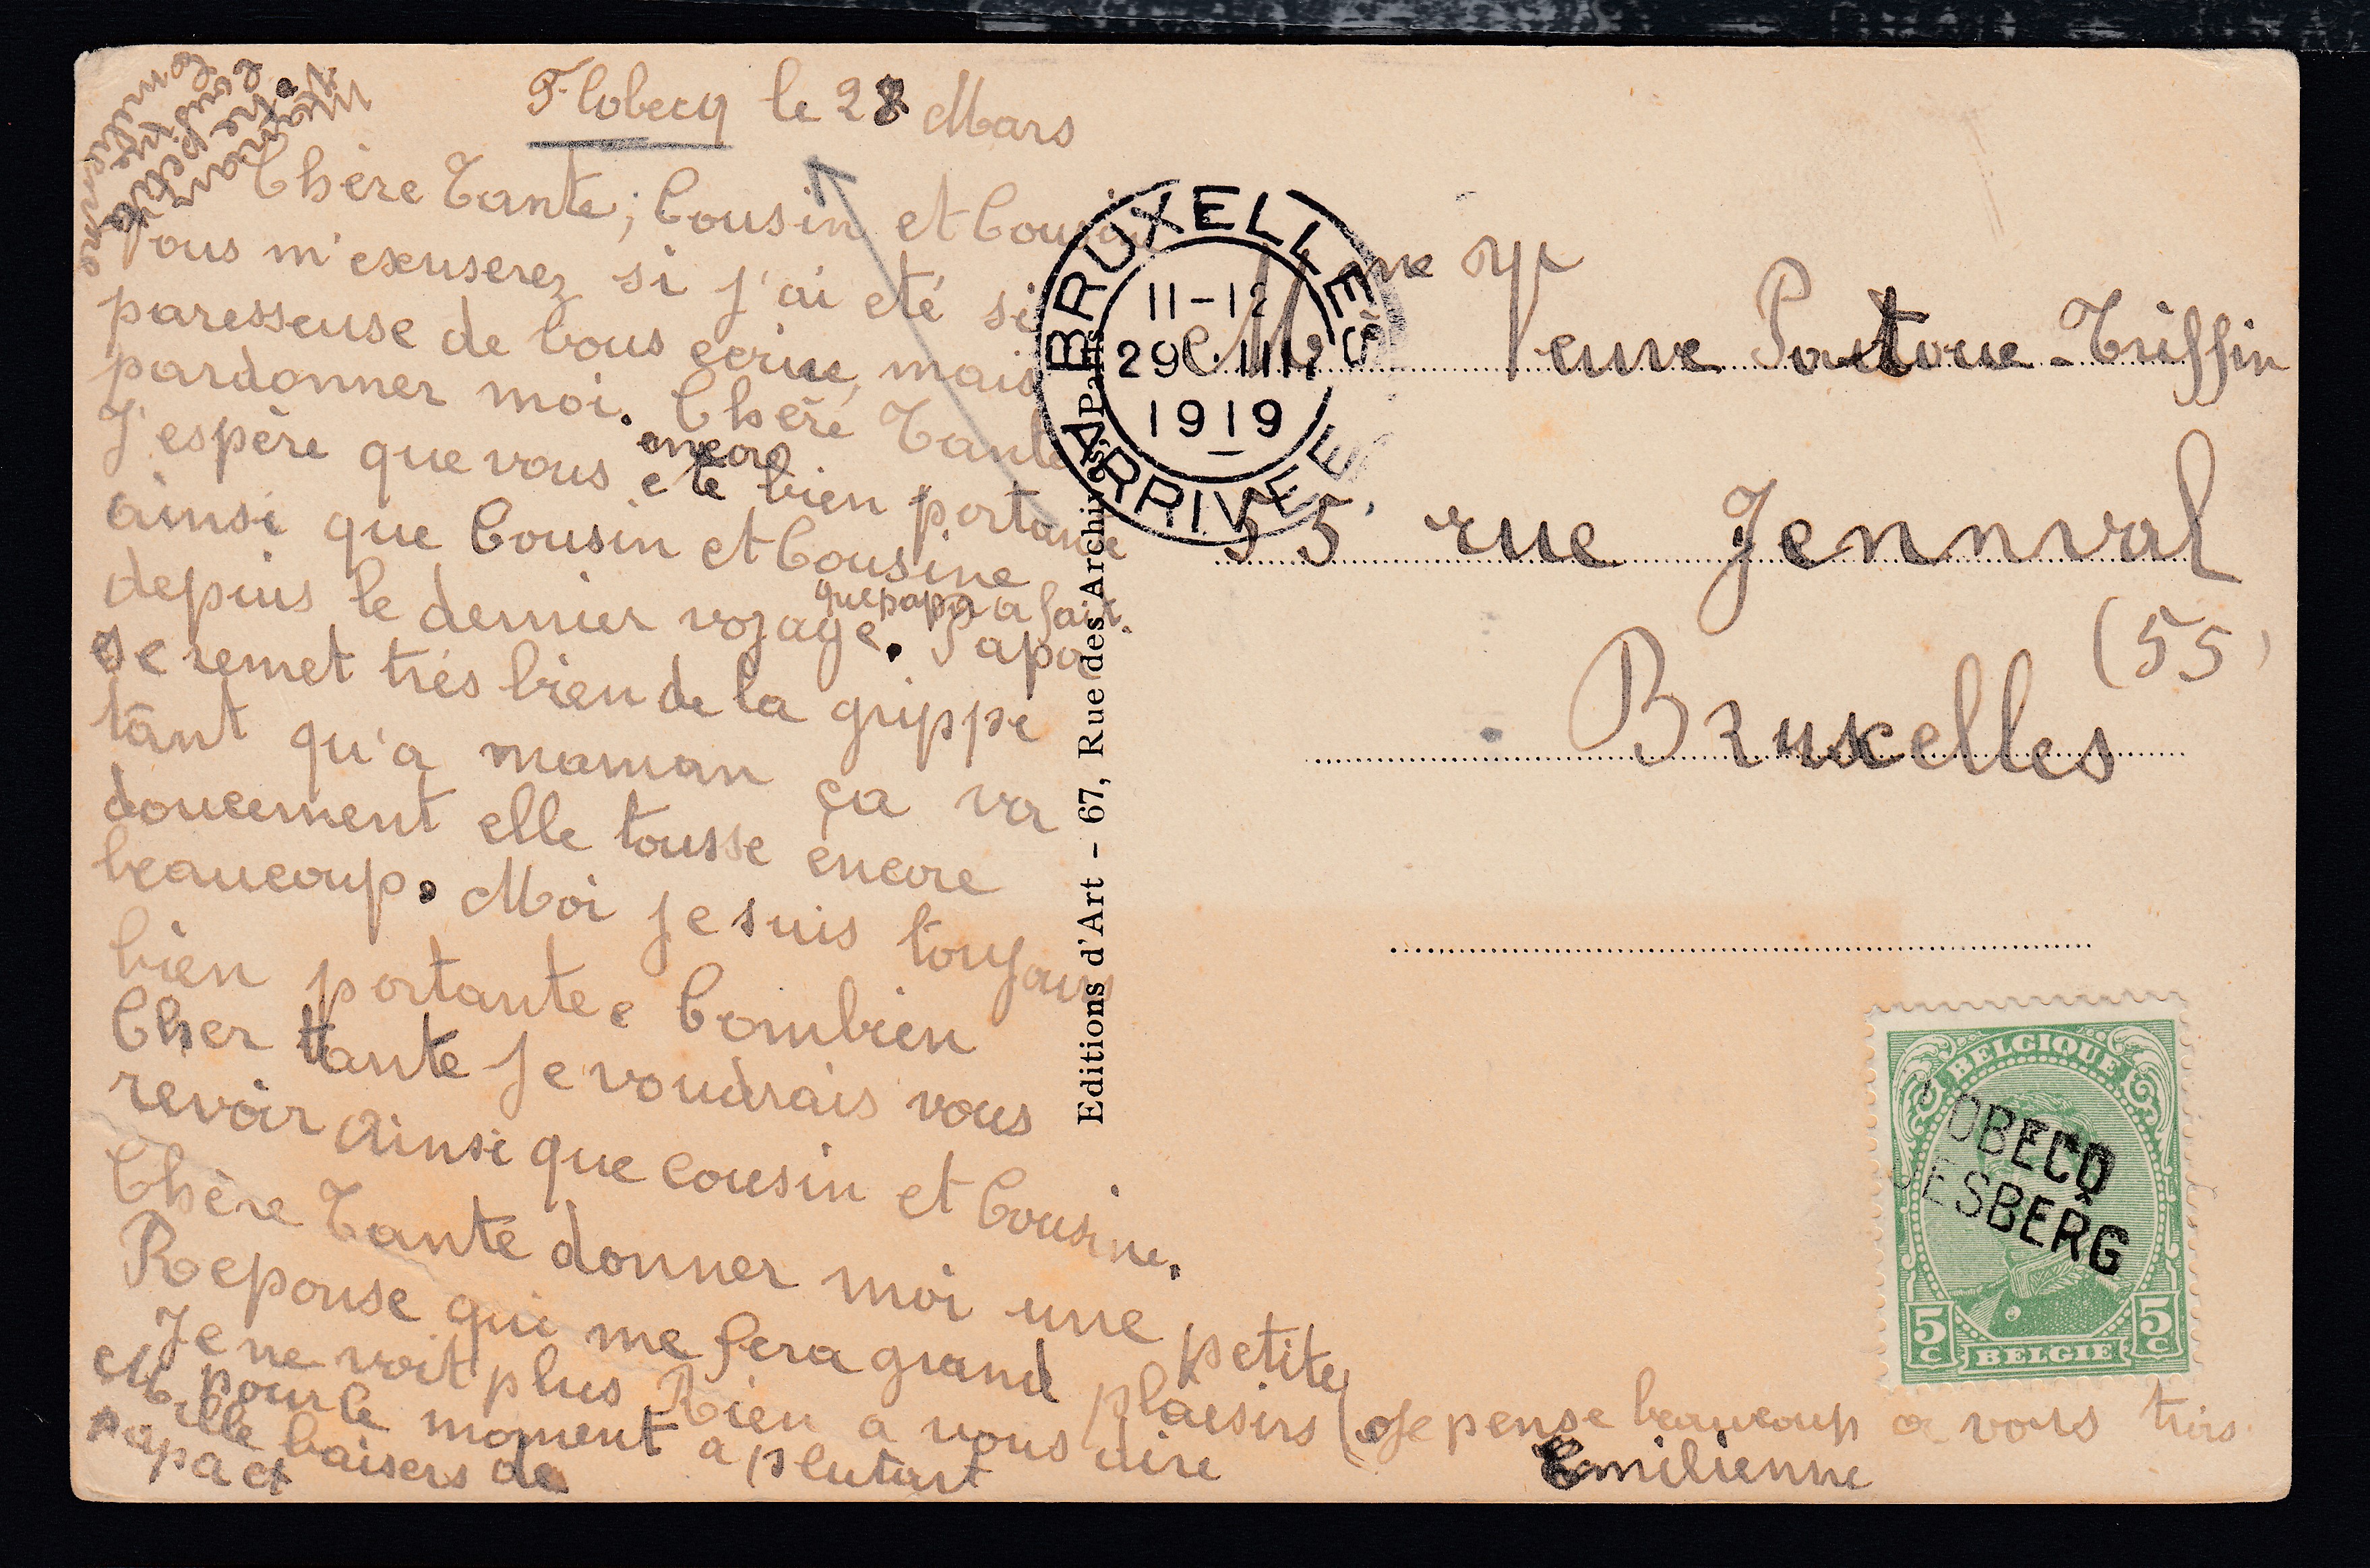 Flobecq le 28 Mars
Chère Tante; Cousin et Cousine
Vous m'exuserez si j'ai eté si
paresseuse de vous ecrire, mais
pardonner moi. Chère Tante
J'espère que vous eté encore bien portante
ainsi que Cousin et Cousine
depuis le dernier voyage que papa a fait. Papa
se remet trés bien de la grippe
tant qu'a maman ça va
doucement elle tousse encore
beaucoup. Moi je suis toujours
bien portante. Combien
Cher tante je voudrais vous
revoir ainsi que cousin et Cousine.
Chère Tante donner moi une petite
Reponse qui me fera grand plaisirs (Je pense beaucoup a vous trois
Je ne voit plus Rien a vous dire
pour le moment a plutart
Mille baisers de
papa et
maman
votre
Emilienne
Emilienne
Mme Ve
Veuve Pastoue-Triffin
55, rue Jennval
(55)
Bruxelles
Editions d'Art - 67, Rue des Archives, Paris
BRUXELLES
11-12
29 III
1919
ARRIVEE
BELGIQUE
OBECQ
ESBERG
5c
5c
BELGIE